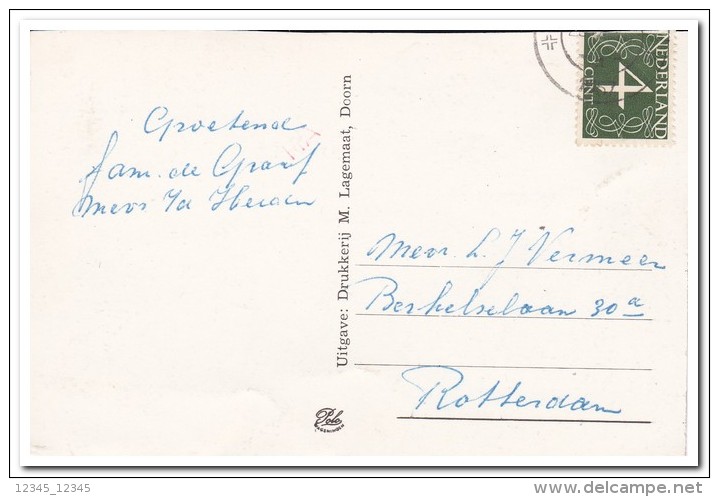 Groetend
fam. de Graaf
Mevr v/d Heiden
Uitgave: Drukkerij M. Lagemaat, Doorn
NEDERLAND
4
CENT
Mevr. L. J Vermeer
Berkelselaan 30a
Rotterdam
Polo
12345_12345
www.delcampe.net